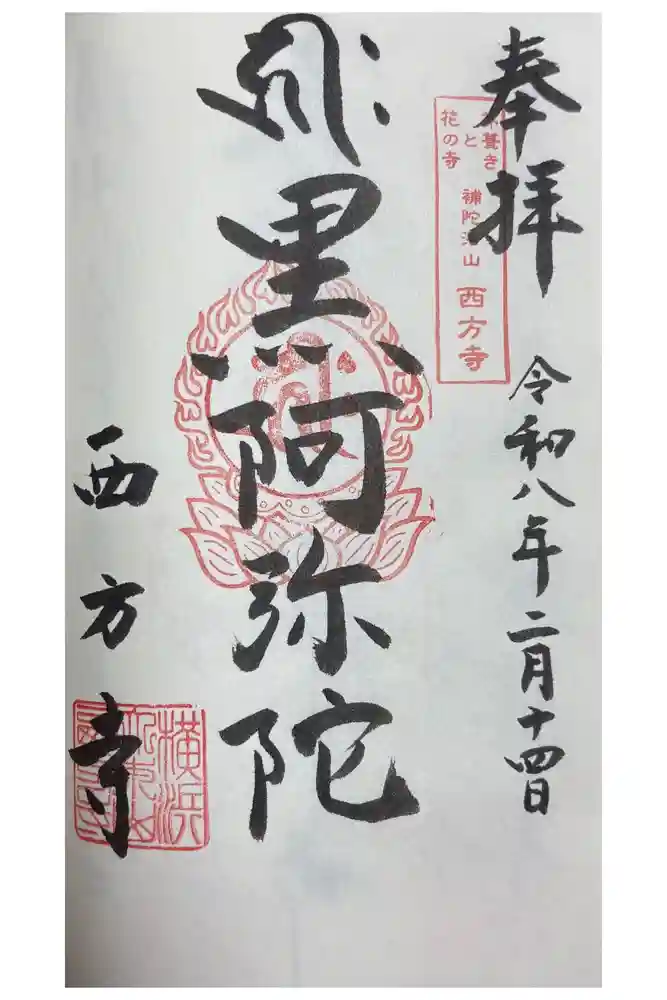 奉拝
令和八年二月十四日
茅葺きと花の寺
補陀洛山 西方寺
𑖮𑖿𑖨𑖱𑖾
黒阿弥陀
西方寺
横浜